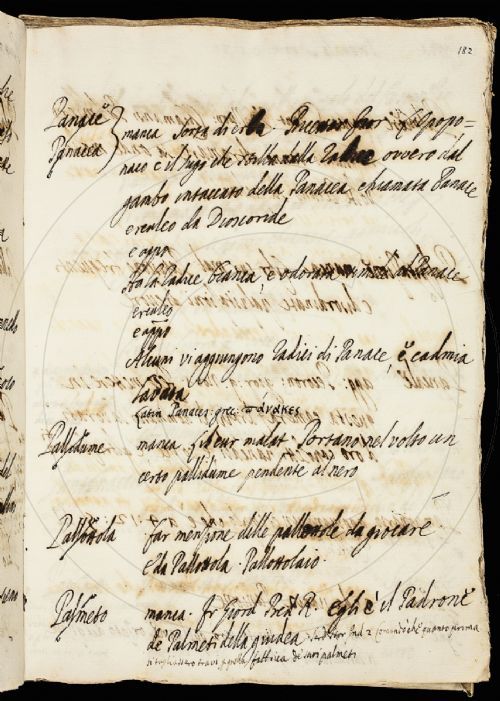 182
Panace
Panacea
manca Sorta di erba. Ricett Fior. L'Opopo=
naco è il sugo che stilla dalla radice ovvero dal
gambo intaccato della Panacea, chiamata Panace
eracleo da Dioscoride
e appo
Ha la radice bianca, e odorata simile al Panace
eracleo
e appo
Alcuni vi aggiungono radici di Panace, e cadmia
lavata
Latin Panaces. grec.
Pallidume
manca. Lib cur malat. Portano nel volto un
certo pallidume pendente al nero
Pallottola
far menzione delle pallottole da giocare
e da Pallottola. Pallottolaio.
Palmeto
manca. Fr Giord Pred R. Egli è il Padrone
de' Palmeti della giudea
si tagliassero travi per la fabbrica de' suoi palmeti